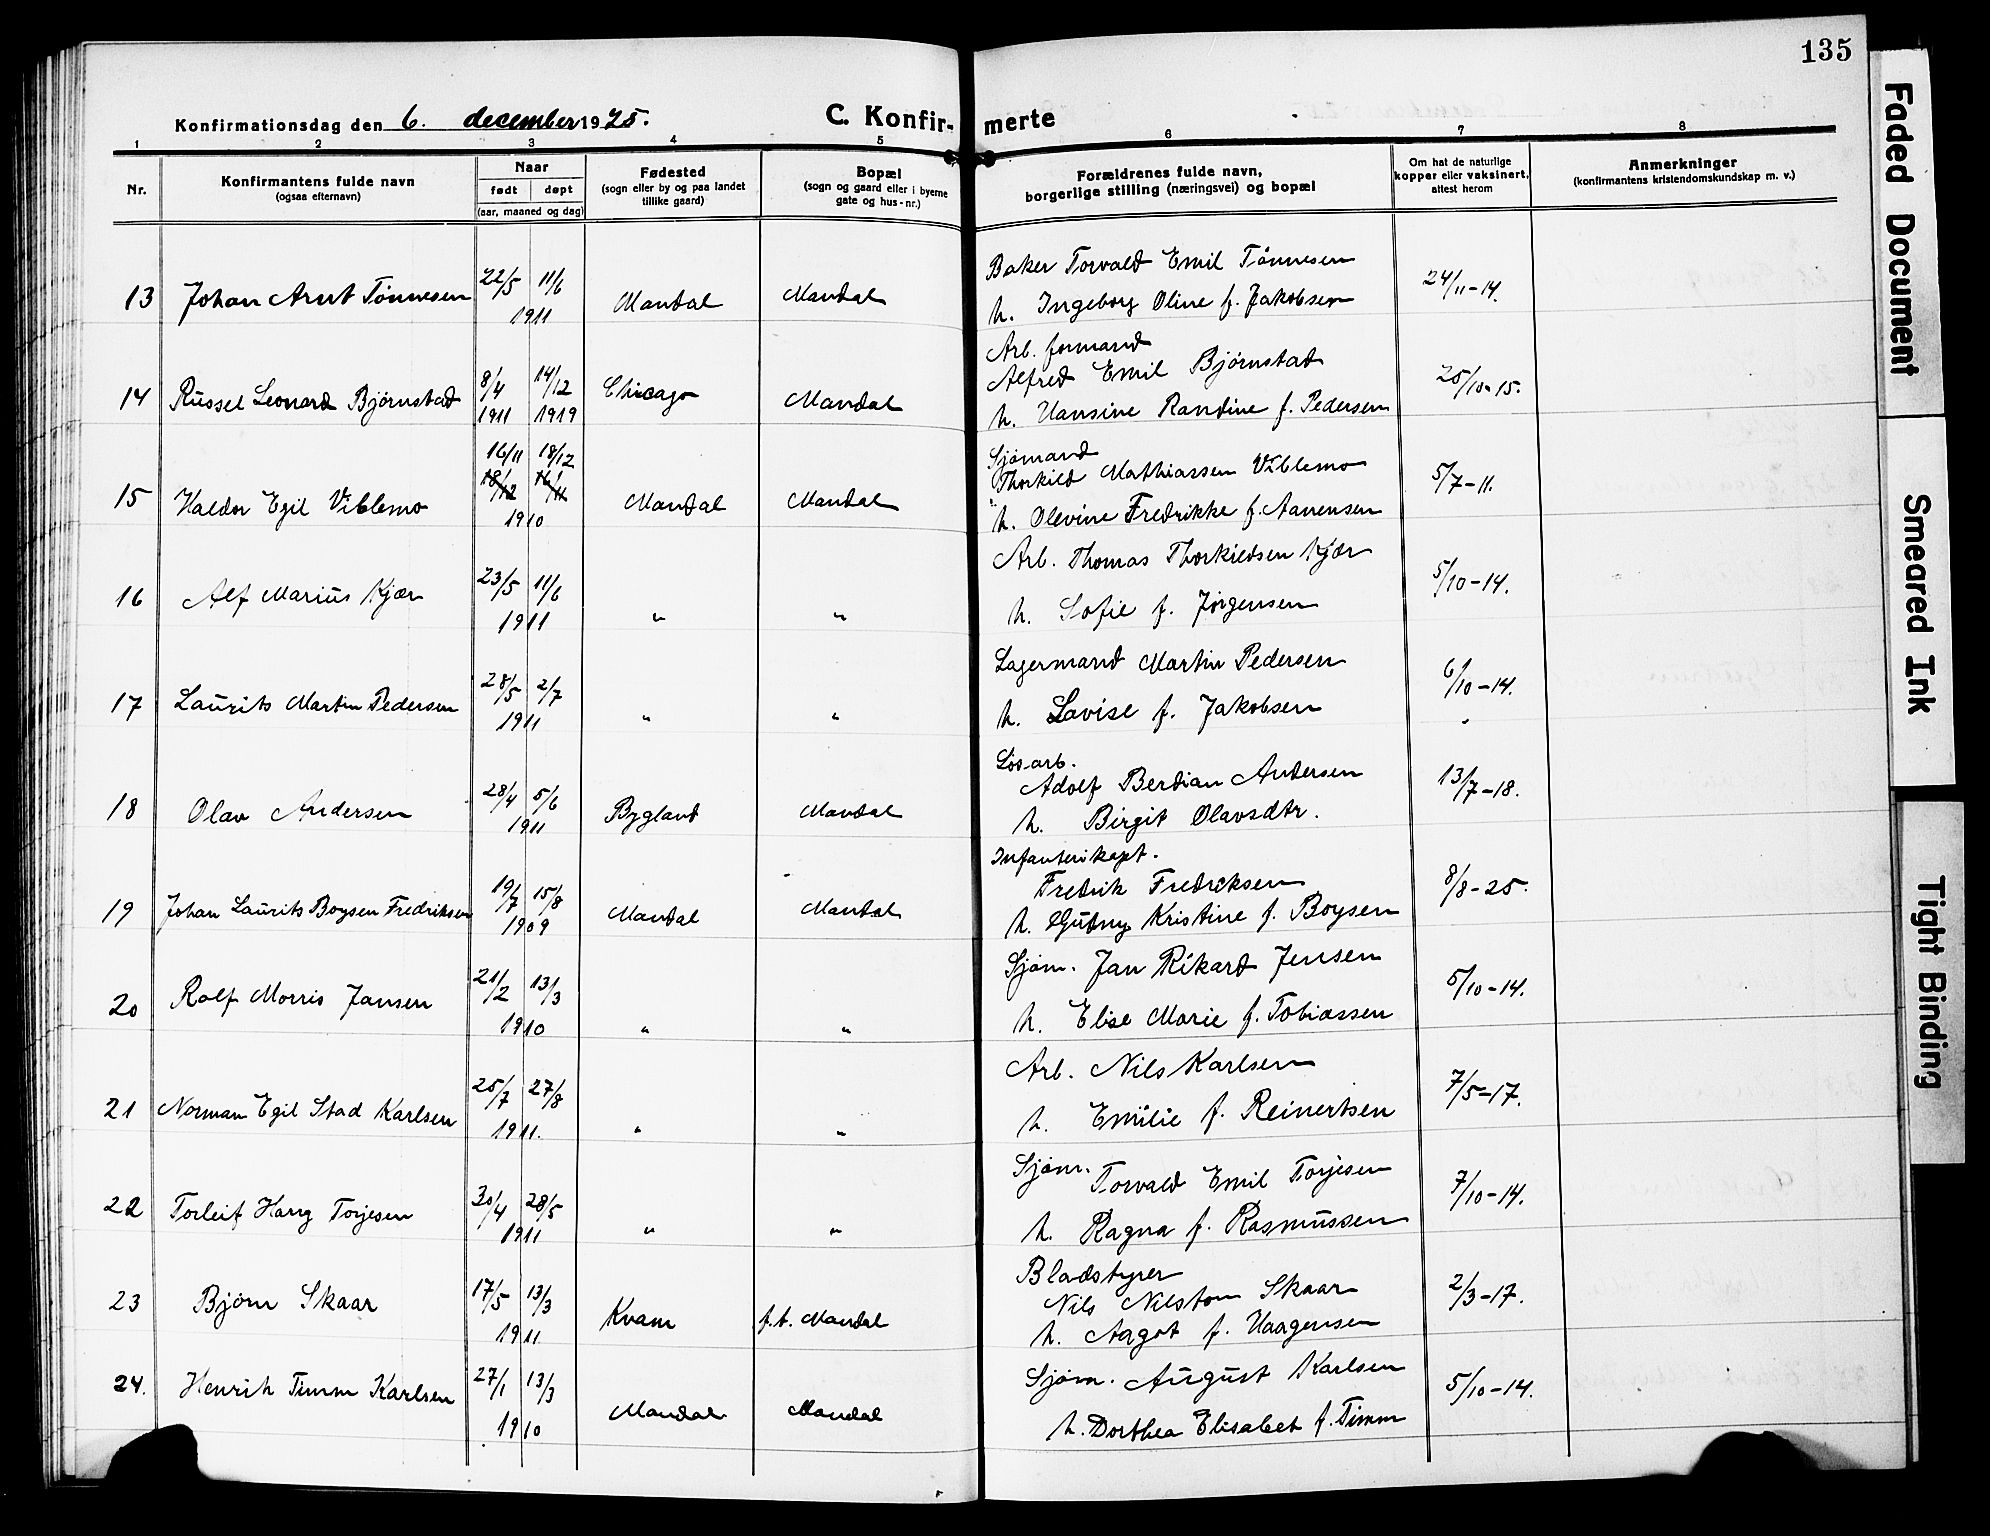 135
Konfirmationsdag den 6. december 1925.
C. Konfir- merte
1 2 3 4 5 6 7 8
Nr.
Konfirmantens fulde navn
(ogsaa efternavn)
Naar
født døpt
(aar, maaned og dag)
Fødested
(sogn eller by og paa landet
tillike gaard)
Bopæl
(sogn og gaard eller i byerne
gate og hus-nr.)
Forældrenes fulde navn,
borgerlige stilling (næringsvei) og bopæl
Om hat de naturlige
kopper eller vaksinert,
attest herom
Anmerkninger
(konfirmantens kristendomskundskap m. v.)
Baker Torvald Emil Tønnesen
13 Johan Arnt Tønnesen 22/5 11/6 Mandal Mandal 24/11-14.
1911
h. Ingeborg Oline f. Jakobsen
Arb. formand
Alfred Emil Bjørnstad
14 Russel Leonard Bjørnstad 8/4 14/12 Chicago Mandal 25/10-15.
1911 1919
h. Hansine Randine f. Pedersen
16/11 18/12
Sjømand
Thorkild Mathiassen Viblemo
15 Haldor Egil Viblemo 18/12 16/11 Mandal Mandal 5/7-11.
1910
h. Olevine Fredrikke f. Aanensen
Arb. Thomas Thorkildsen Kjær
16 Alf Marius Kjær 23/5 11/6 " " 5/10-14.
1911
h. Sofie f. Jørgensen
Lagermand Martin Pedersen
17 Laurits Martin Pedersen 28/5 2/7 " " 6/10-14.
1911
h. Lovise f. Jakobsen
Løs-arb.
Adolf Berdian Andersen
18 Olav Andersen 28/4 5/6 Bygland Mandal 13/7-18.
1911
h. Birgit Olavsdtr.
Infanterikapt.
Fredrik Fredriksen
19 Johan Laurits Boysen Fredriksen 19/7 15/8 Mandal Mandal 8/8-25.
1909
h. Gudny Kristine f. Boysen
Sjøm. Jan Rikard Jensen
20 Rolf Morris Jansen 21/2 13/3 " " 5/10-14.
1910
h. Elise Marie f. Tobiassen
Arb. Nils Karlsen
21 Norman Egil Stad Karlsen 25/7 27/8 " " 7/5-17.
1911.
h. Emilie f. Reinertsen
Sjøm. Torvald Emil Torjesen
22 Torleif Harry Torjesen 30/4 28/5 " " 7/10-14.
1911
h. Ragna f. Rasmussen
Bladstyrer
Nils Nilston Skaar
23 Bjørn Skaar 17/5 13/3 Kvam f.t. Mandal 2/3-17.
1911
h. Aagot f. Haagensen
Sjøm. August Karlsen
24. Henrik Timm Karlsen 27/1 13/3 Mandal Mandal 5/10-14.
1910
h. Dorthea Elisabet f. Timm
Faded Document
Smeared Ink
Tight Binding